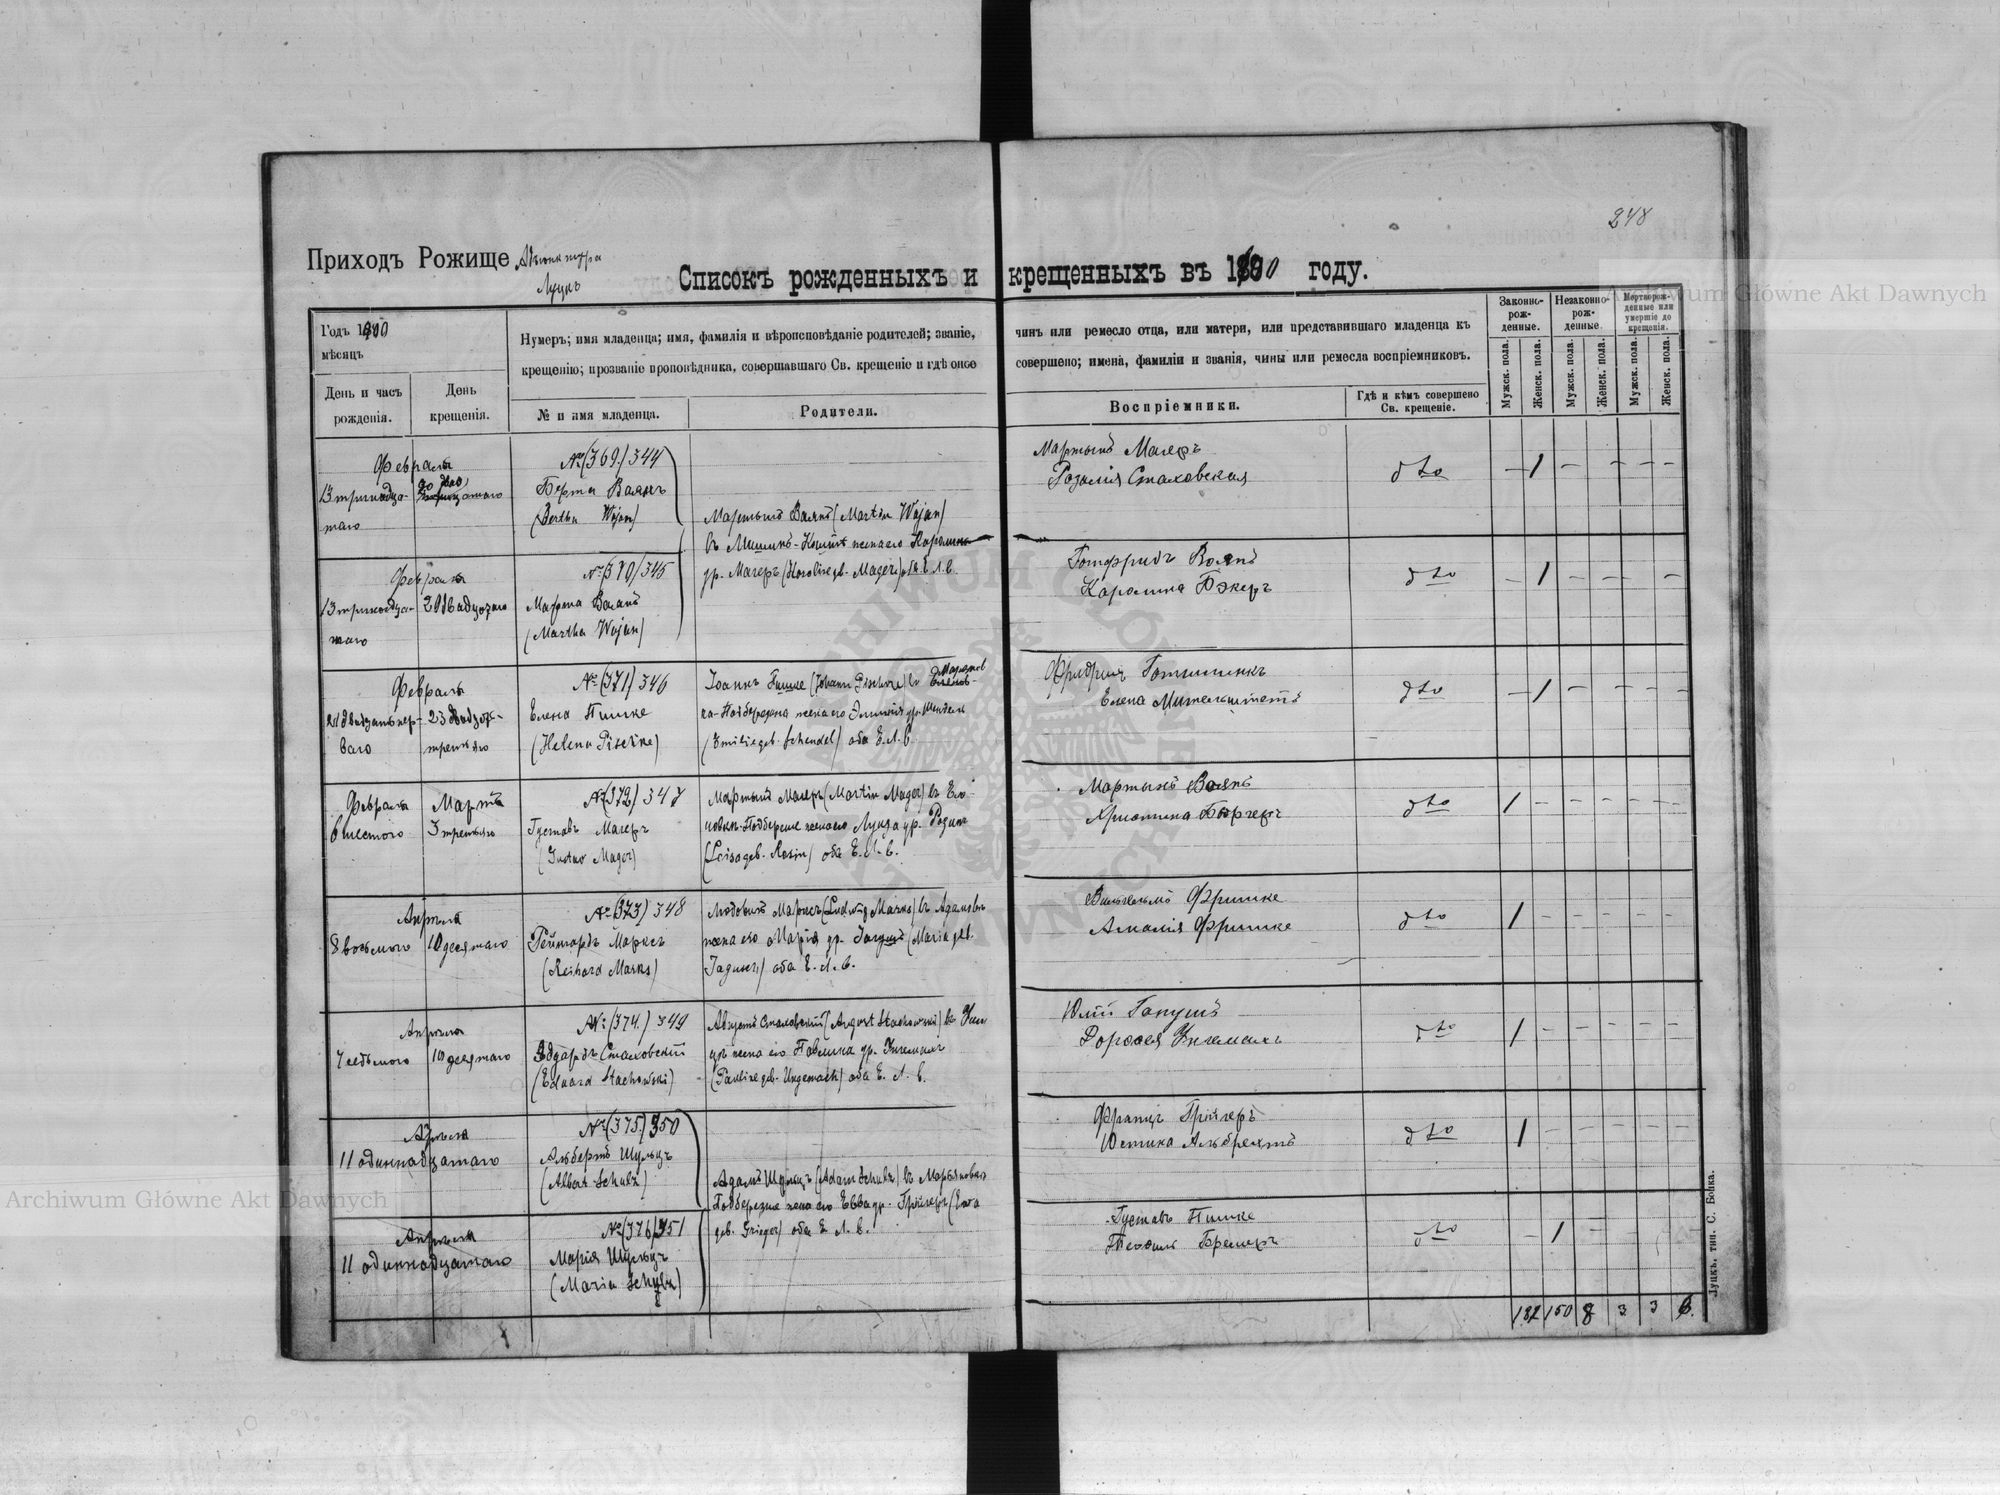 248
Приходъ Рожище Адъюнктура
Луцкъ
Списокъ рожденныхъ и крещенныхъ въ 1900 году.
Годъ 1900
мѣсяцъ
День и часъ
рожденія.
День
крещенія.
Нумеръ; имя младенца; имя, фамилія и вѣроисповѣданіе родителей; званіе,
крещенію; прозваніе проповѣдника, совершавшаго Св. крещеніе и гдѣ оное
№ и имя младенца.
Родители.
чинъ или ремесло отца, или матери, или представившаго младенца къ
совершено; имена, фамиліи и званія, чины или ремесла воспріемниковъ.
Воспріемники.
Гдѣ и кѣмъ совершено
Св. крещеніе.
Законно-
рож-
денные.
Незаконно-
рож-
денные.
Мертворож-
денные или
умершіе до
крещенія.
Мужск. пола.
Женск. пола.
Мужск. пола.
Женск. пола.
Мужск. пола.
Женск. пола.
Февраля
13 тринадца-
таго
№ (369.) 344
Берта Ваянъ
(Bertha Wojan)
Мартынъ Ваянъ (Martin Wojan)
Мартынъ Магеръ
Розалія Стаховская
dto
– 1 – – – –
въ жена его Каролина
ур. Магеръ (Karoline geb. Mager) оба Е. Л. В.
Февраля
13 тринадца-
таго
20
№ (370) 345
Марта Ваянъ
(Martha Wojan)
Готфридъ Воянъ
Каролина Бэкеръ
dto
– 1 – – – –
Февраля
21 двадцать пер-
ваго
23 двадцать
третьяго
№ (371) 346
Елена Пишке
(Helena Pischke)
Іоаннъ Пишке (Johann Pischke) въ
Подбережна жена его Эмилія ур. Шендель
(Emilie geb. Schendel) оба Е. Л. В.
Фридрих
Елена
dto
– 1 – – – –
Февраля
6 шестого
Марта
3 третьяго
№ (372) 347
Густавъ Магеръ
(Gustav Mager)
Мартынъ Магеръ (Martin Mager) въ
Подбереже жена его Луиза ур. Розинъ
(Loisa geb. Rosin) оба Е. Л. В.
Мартынъ Воянъ
Христина
dto
1 – – – – –
Апрѣля
8 восьмого
10 десятаго
№ (373) 348
Рейнгардъ Марксъ
(Reihard Marks)
Людовикъ Марксъ (Ludwig Marks) въ Адамовъ
жена его Марія ур. (Maria geb.
) оба Е. Л. В.
Вильгельмъ Фришке
Амалія Фришке
dto
1 – – – – –
Апрѣля
7 седьмого
10 десятаго
№ (374.) 349
Эдуардъ Стаховскій
(Eduard Stachowski)
Августъ Стаховскій (August Stachowski) въ
жена его Павлина ур. Унгемахъ
(Pauline geb. Ungemach) оба Е. Л. В.
Юлій Ганушъ
Доросея Унгемахъ
dto
1 – – – – –
Апрѣля
11 одиннадцатаго
№ (375.) 350
Альбертъ Шульцъ
(Albert Schulz)
Адамъ Шульцъ (Adam Schulz) въ
Подбережже жена его Евва ур. Григеръ (Ewa
geb. Grieger) оба Е. Л. В.
Францъ Григеръ
Юстина Альбрехтъ
dto
1 – – – – –
Апрѣля
11 одиннадцатаго
№ (376) 351
Марія Шульцъ
(Maria Schulz)
Густавъ Пишке
dto
– 1 – – – –
150 8 3 3 6.
Луцкъ, тип. С. Бонка.
Archiwum Główne Akt Dawnych
Archiwum Główne Akt Dawnych
ARCHIWUM GŁÓWNE AKT DAWNYCH